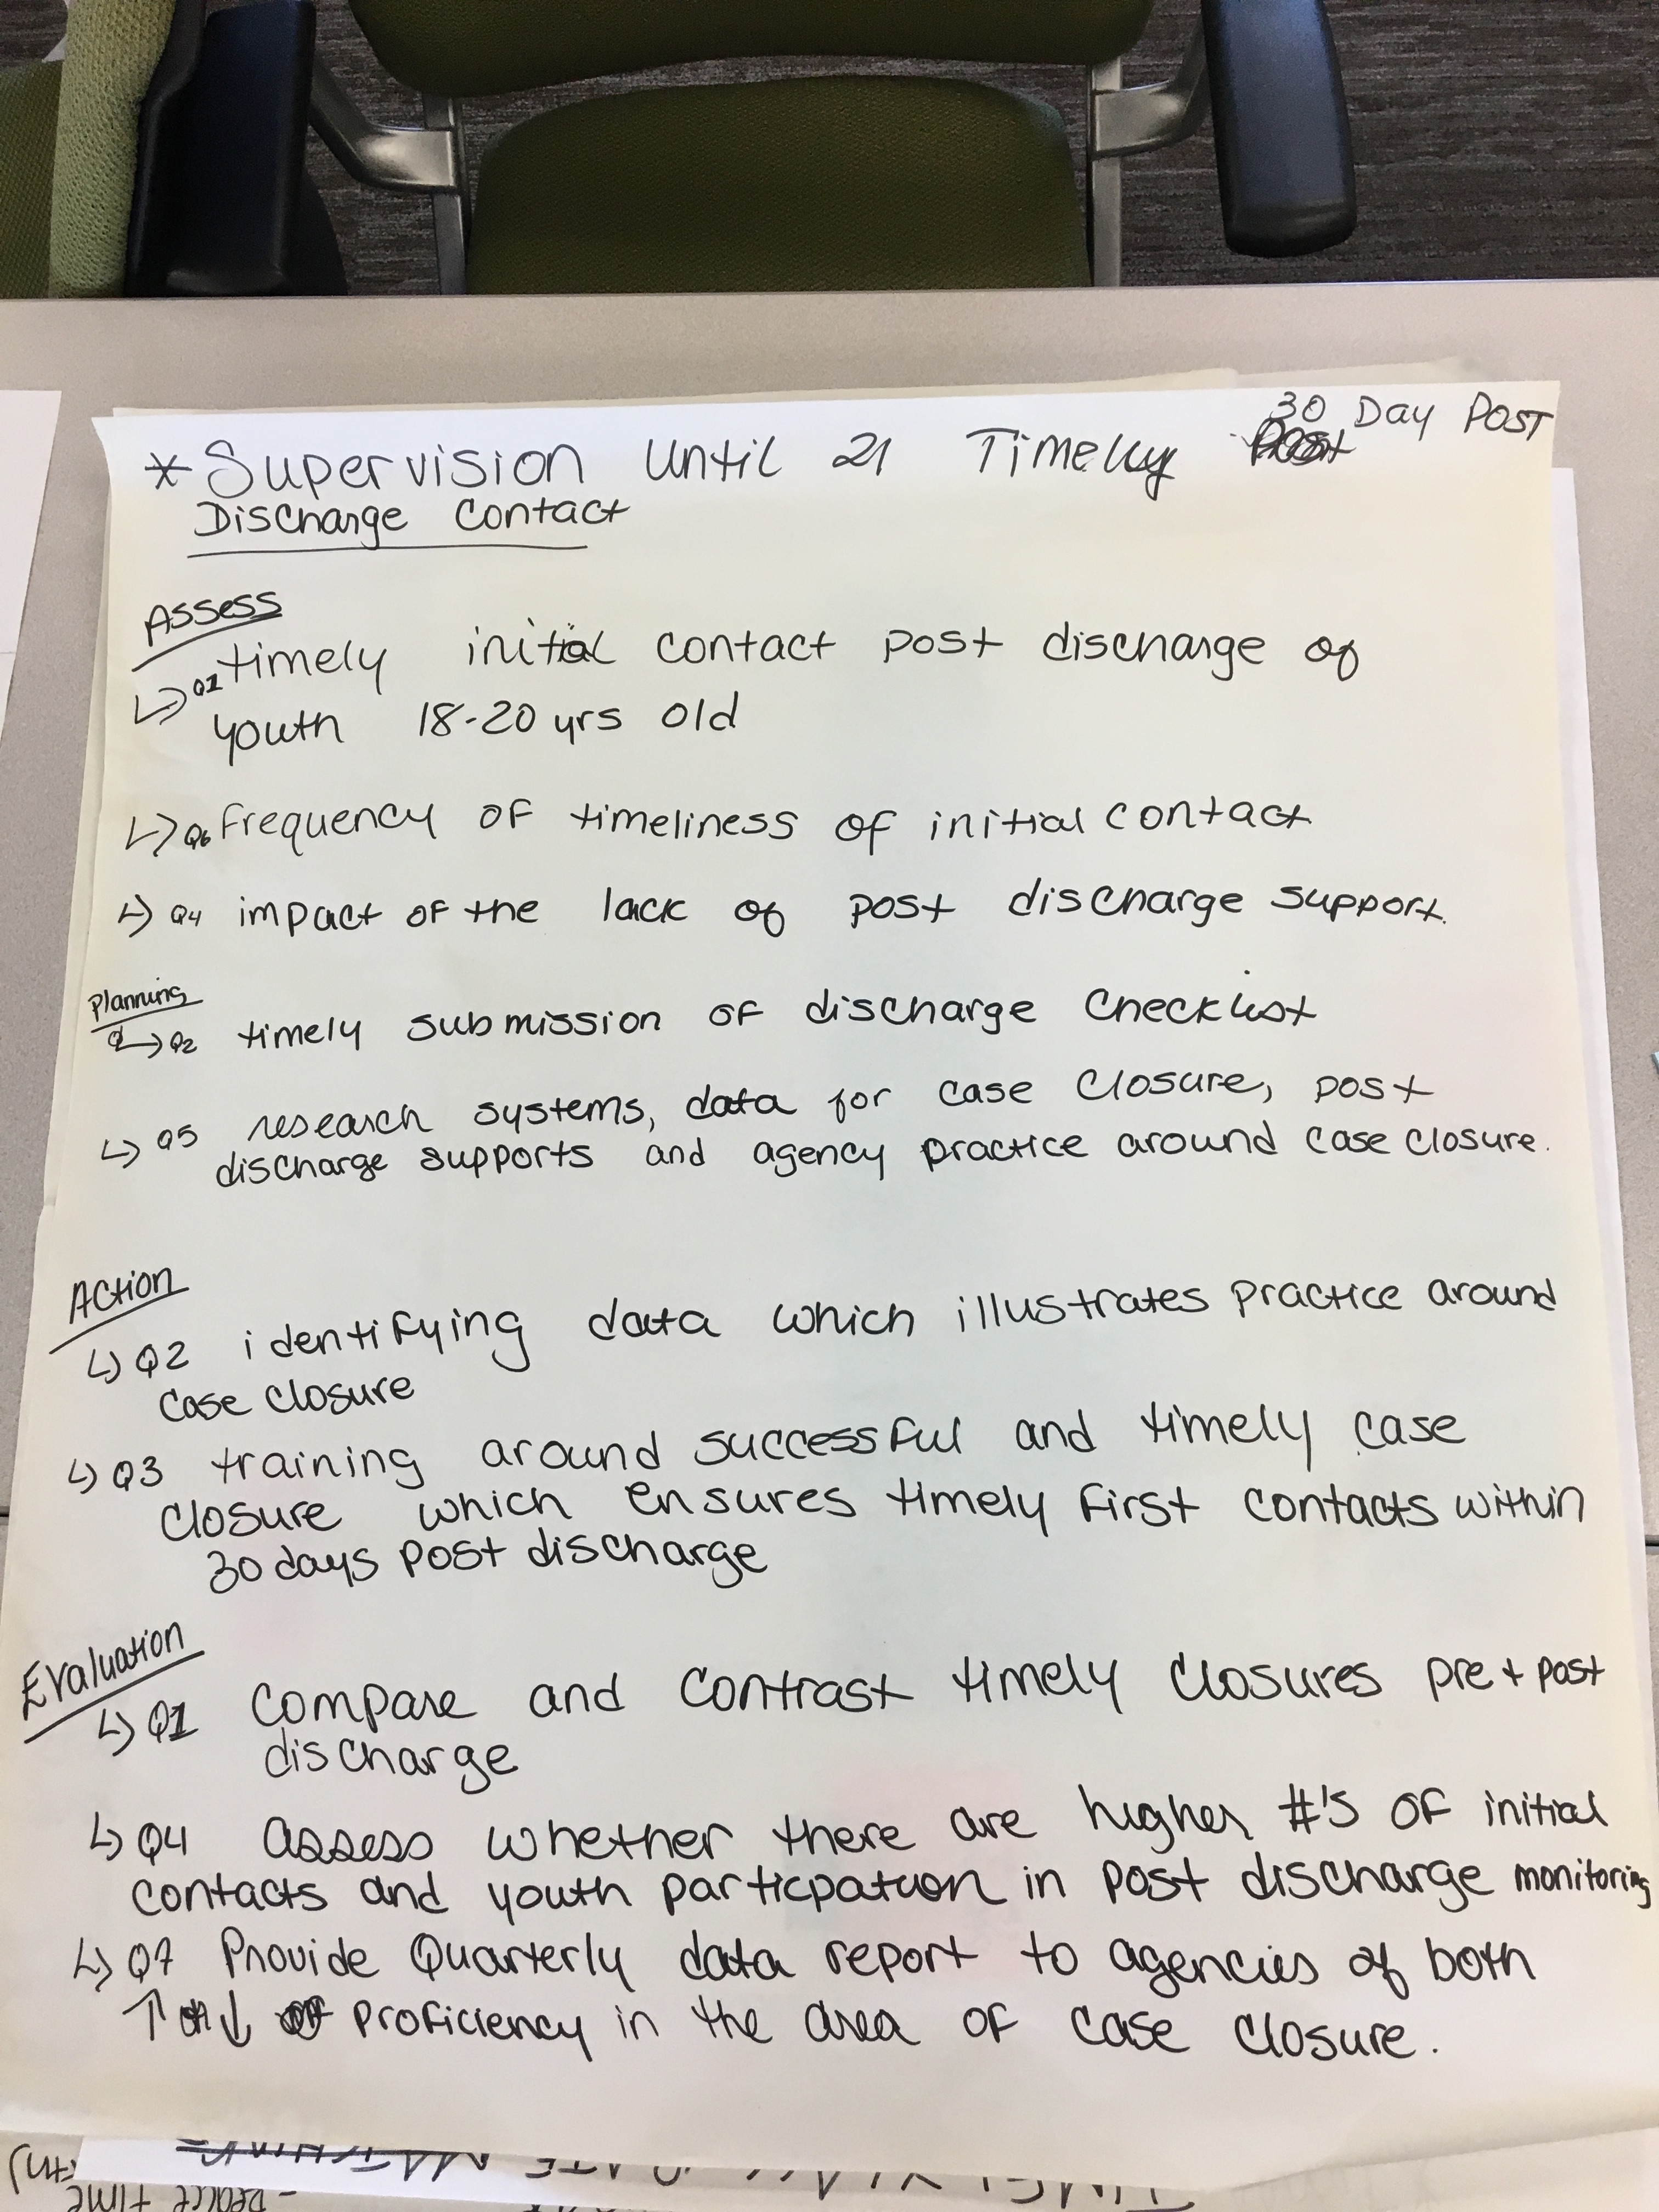 30 Day POST
* Supervision Until 21 Timely
Discharge Contact
Assess
↳ Q1 timely initial contact post discharge of
youth 18-20 yrs old
↳ Q6 frequency of timeliness of initial contact
↳ Q4 impact of the lack of post discharge support.
Planning
↳ Q2 timely submission of discharge Checklist
↳ Q5 research systems, data for case closure, post
discharge supports and agency practice around case closure.
Action
↳ Q2 identifying data which illustrates practice around
case closure
↳ Q3 training around successful and timely case
closure which ensures timely first contacts within
30 days post discharge
Evaluation
↳ Q1 Compare and contrast timely closures pre + post
discharge
↳ Q4 assess whether there are higher #'s of initial
contacts and youth particpation in post discharge monitoring
↳ Q7 Provide Quarterly data report to agencies of both
↑ ↓ proficiency in the area of case closure.
TIME